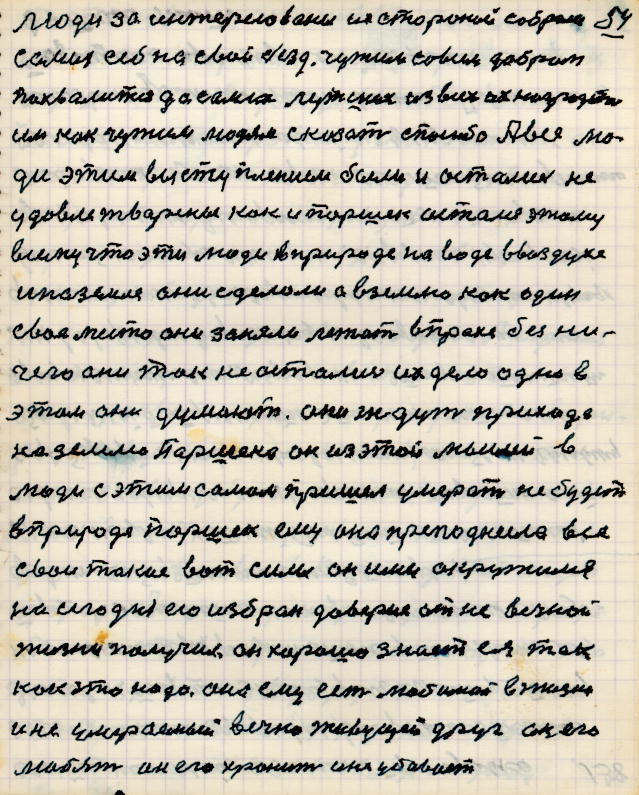 люди за интересовани их стороной собрали 54
самих себя на свой сезд. чужим совсем добром
похвалится да самих лутших из всих их наградит
им как чужим людям сказат спасибо А все лю-
ди этим выступлением были и осталис не
удовлетварены как и паршек астался этому
всему что эти люди в природе на воде в воздухе
и на земле они сделали а в землю как один
свое место они заняли лежат в прахе без ни-
чего они так не осталис их дело одно в
этом они думают. они ждут прихода
на землю Паршека он из этой мыслей в
люди с этим самом пришел умерат не будет
в природе паршек ему она преподнесла все
свои такие вот силы он ими окружился
на сегодня его избран даверие от не вечной
жизни получил. он хорошо знает ея так
как это надо. она ему ест любимой в жизни
и не умираемый вечно живущей друг он его
любят он его хранит и не убивает